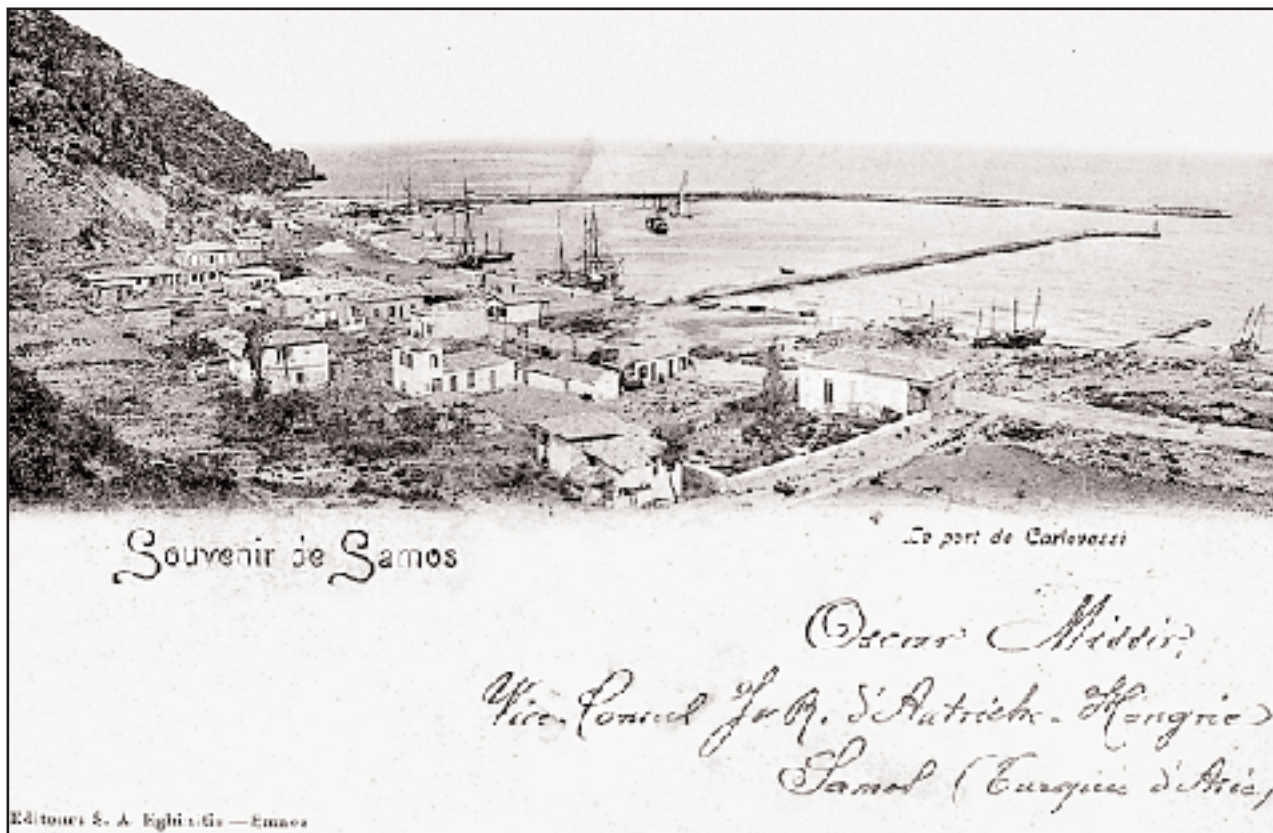 Souvenir de Samos
Le port de Carlovassi
Oscar
Vice-Consul I. R. d'Autriche-Hongrie
Samos (Turquie d'Asie)
Editeurs S. A.